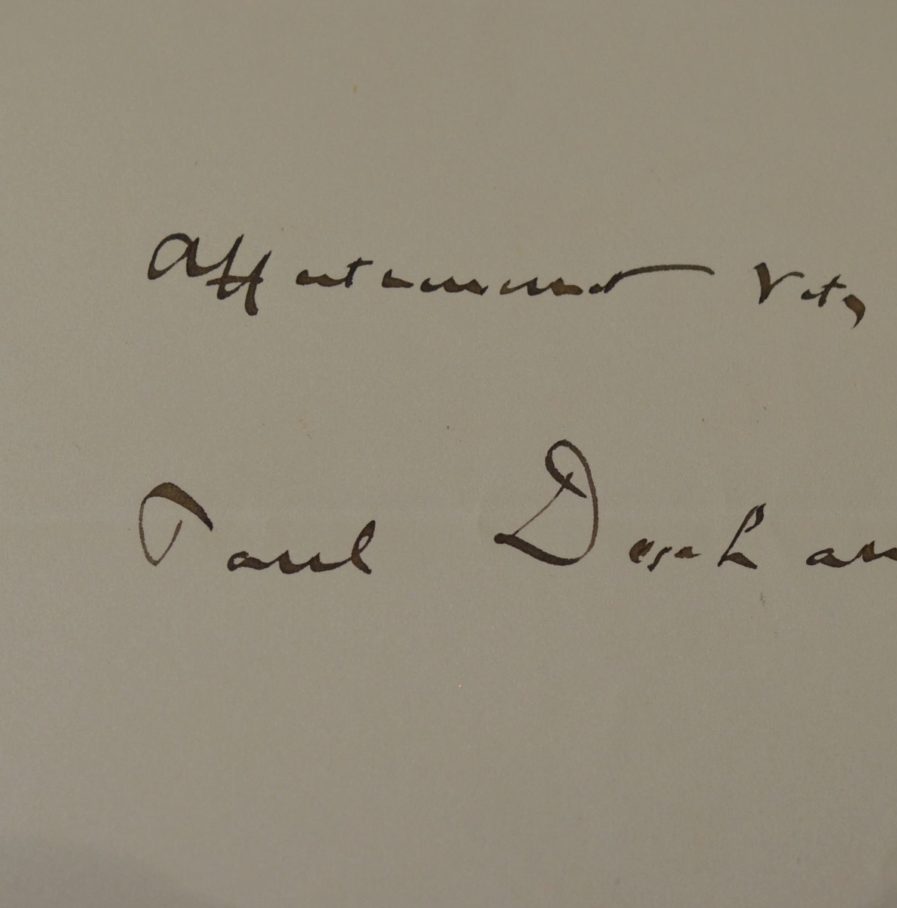 Affectueusement Votre
Paul Deschan